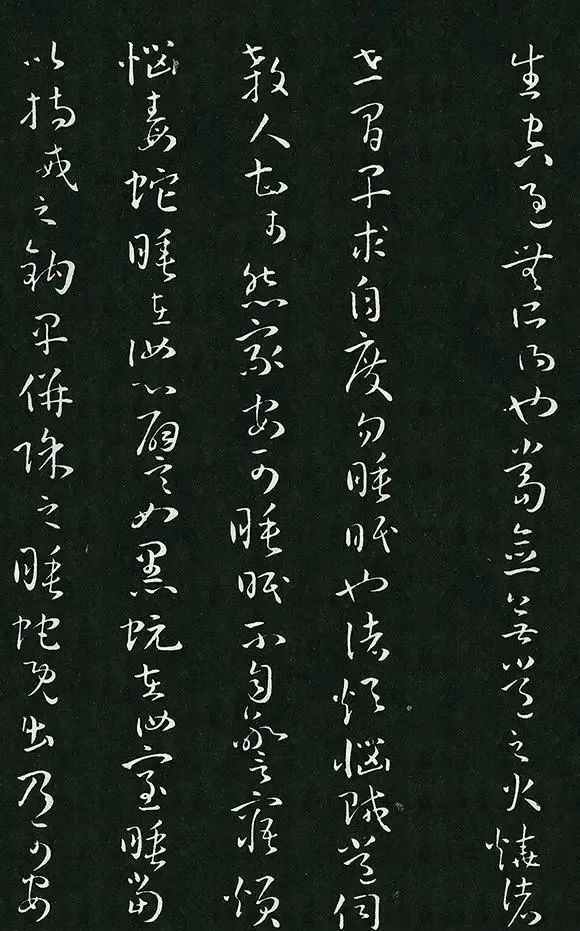 生空過無所得也當念無常之火燒諸
世間早求自度勿睡眠也諸煩惱賊常伺
殺人甚於怨家安可睡眠不自警寤煩
惱毒蛇睡在汝心譬如黑蚖在汝室睡當
以持戒之鉤早併除之睡蛇既出乃可安